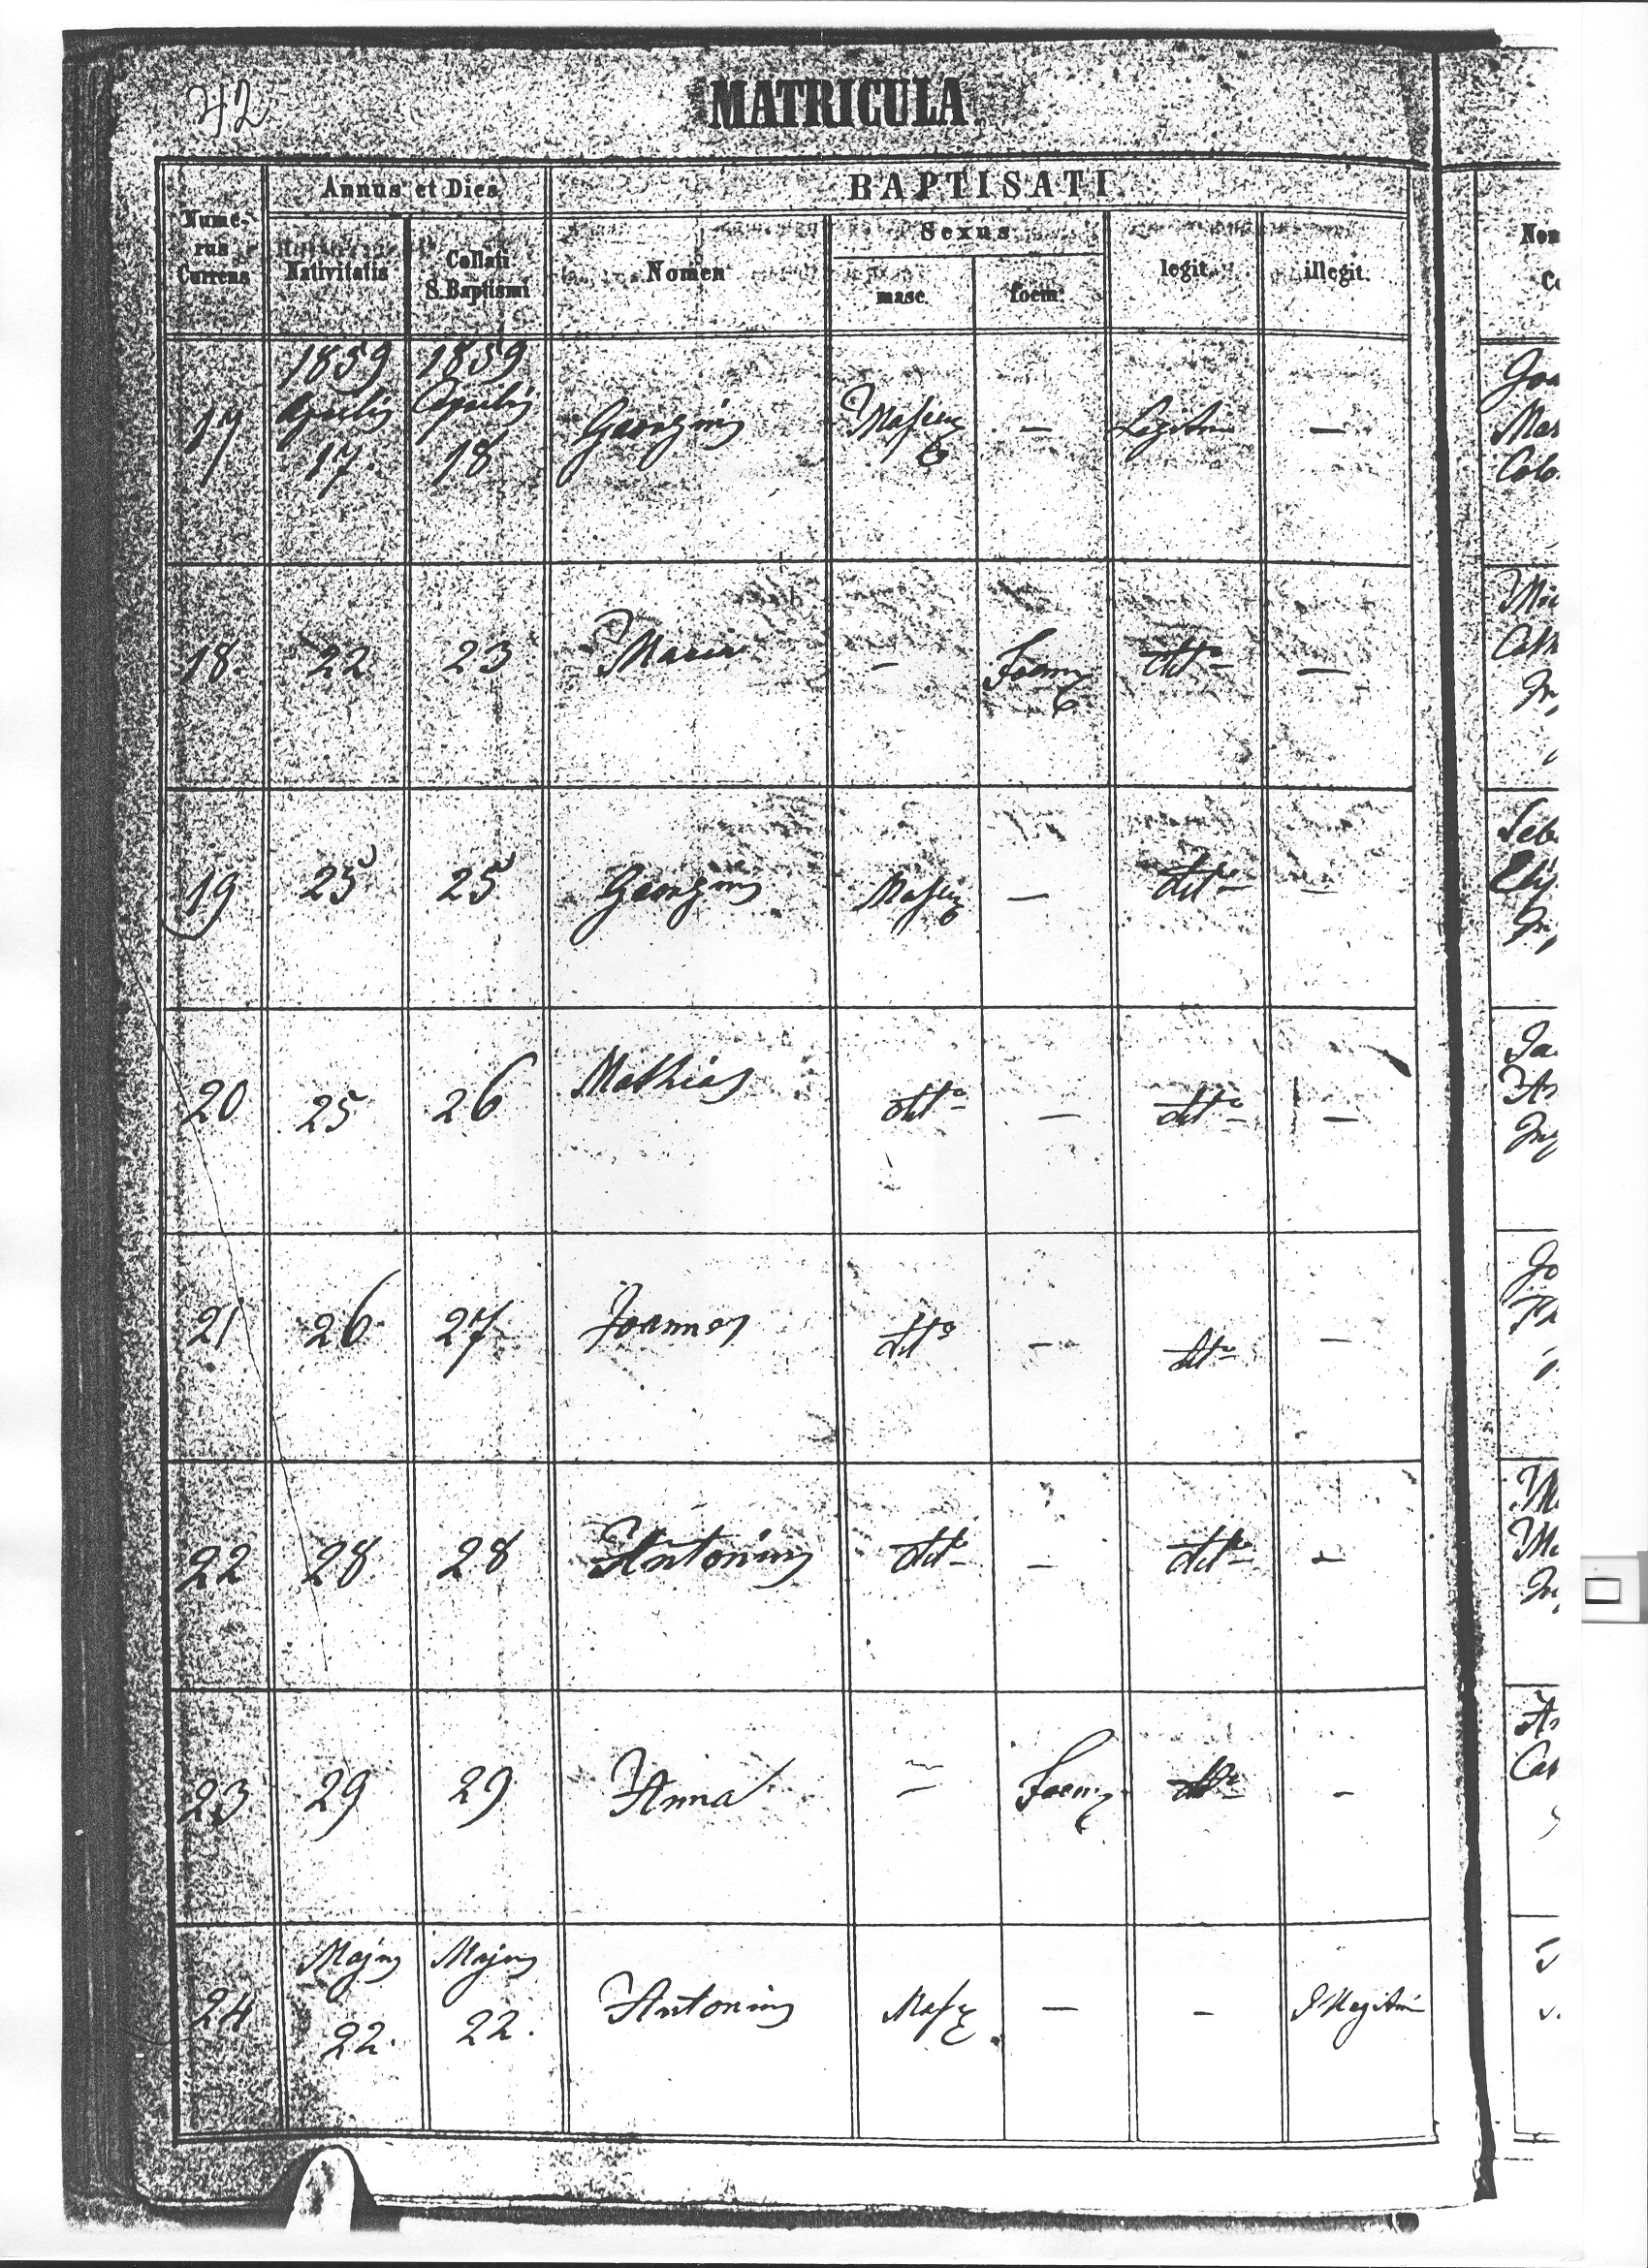 42
MATRICULA.
Nume-
rus
Currens
Annus et Dies
Nativitatis
Collati
S. Baptismi
BAPTISATI
Nomen
Sexus
masc.
foem.
legit.
illegit.
17 1859 Aprilis 17. 1859 Aprilis 18 Georgius Mascu — Legitim —
18. 22 23 Maria — Foem dtto —
19 25 25 Georgius Mascu — dtto —
20 25 26 Mathias dtto — dtto —
21 26 27 Joannes dtto — dtto —
22 28 28 Antonius dtto — dtto —
23 29 29 Anna — Foem dtto —
24 Majus 22. Majus 22. Antonius Masc — — Illegitim